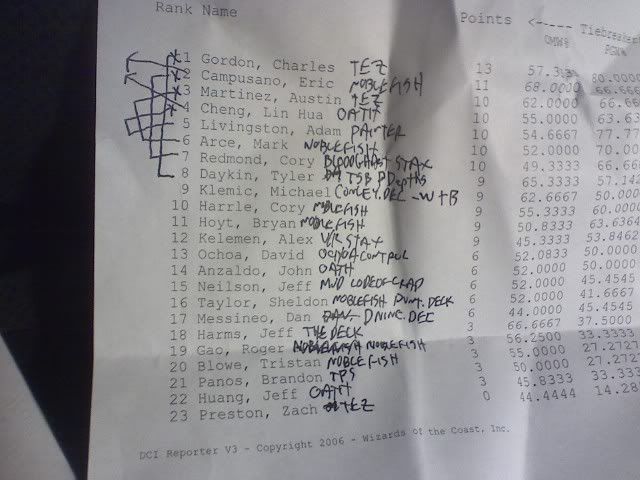 Rank Name Points <----- Tiebreaker
OMW% PGW%
1 Gordon, Charles TEZ 13 80.0000
2 Campusano, Eric NOBLEFISH 11 68.0000 66.666
3 Martinez, Austin TEZ 10 62.0000 66.66
4 Cheng, Lin Hua OATH 10 55.0000 63.63
5 Livingston, Adam PAINTER 10 54.6667 77.77
6 Arce, Mark NOBLEFISH 10 52.0000 70.00
7 Redmond, Cory BLOODGHAST STAX 10 49.3333 66.66
8 Daykin, Tyler TSB PDepths 9 65.3333 57.142
9 Klemic, Michael CONLEY.DEC -W+B 9 62.6667 50.000
10 Harrle, Cory NOBLEFISH 9 55.3333 60.000
11 Hoyt, Bryan NOBLEFISH 9 50.8333 63.6364
12 Kelemen, Alex U/R STAX 9 45.3333 53.8462
13 Ochoa, David OCHOA CONTROL 6 52.0833 50.0000
14 Anzaldo, John OATH 6 52.0000 50.0000
15 Neilson, Jeff MUD LODEOFCRAP 6 52.0000 45.4545
16 Taylor, Sheldon NOBLEFISH PUNT.DECK 6 52.0000 41.6667
17 Messineo, Dan DMINC.DEC 6 44.0000 45.4545
18 Harms, Jeff THE DECK 3 66.6667 37.5000
19 Gao, Roger NOBLEFISH 3 56.2500 33.333
20 Blowe, Tristan NOBLEFISH 3 55.0000 27.2727
21 Panos, Brandon TPS 3 50.0000 27.272
22 Huang, Jeff OATH 3 45.8333 33.333
23 Preston, Zach TEZ 0 44.4444 14.28
DCI Reporter V3 - Copyright 2006 - Wizards of the Coast, Inc.